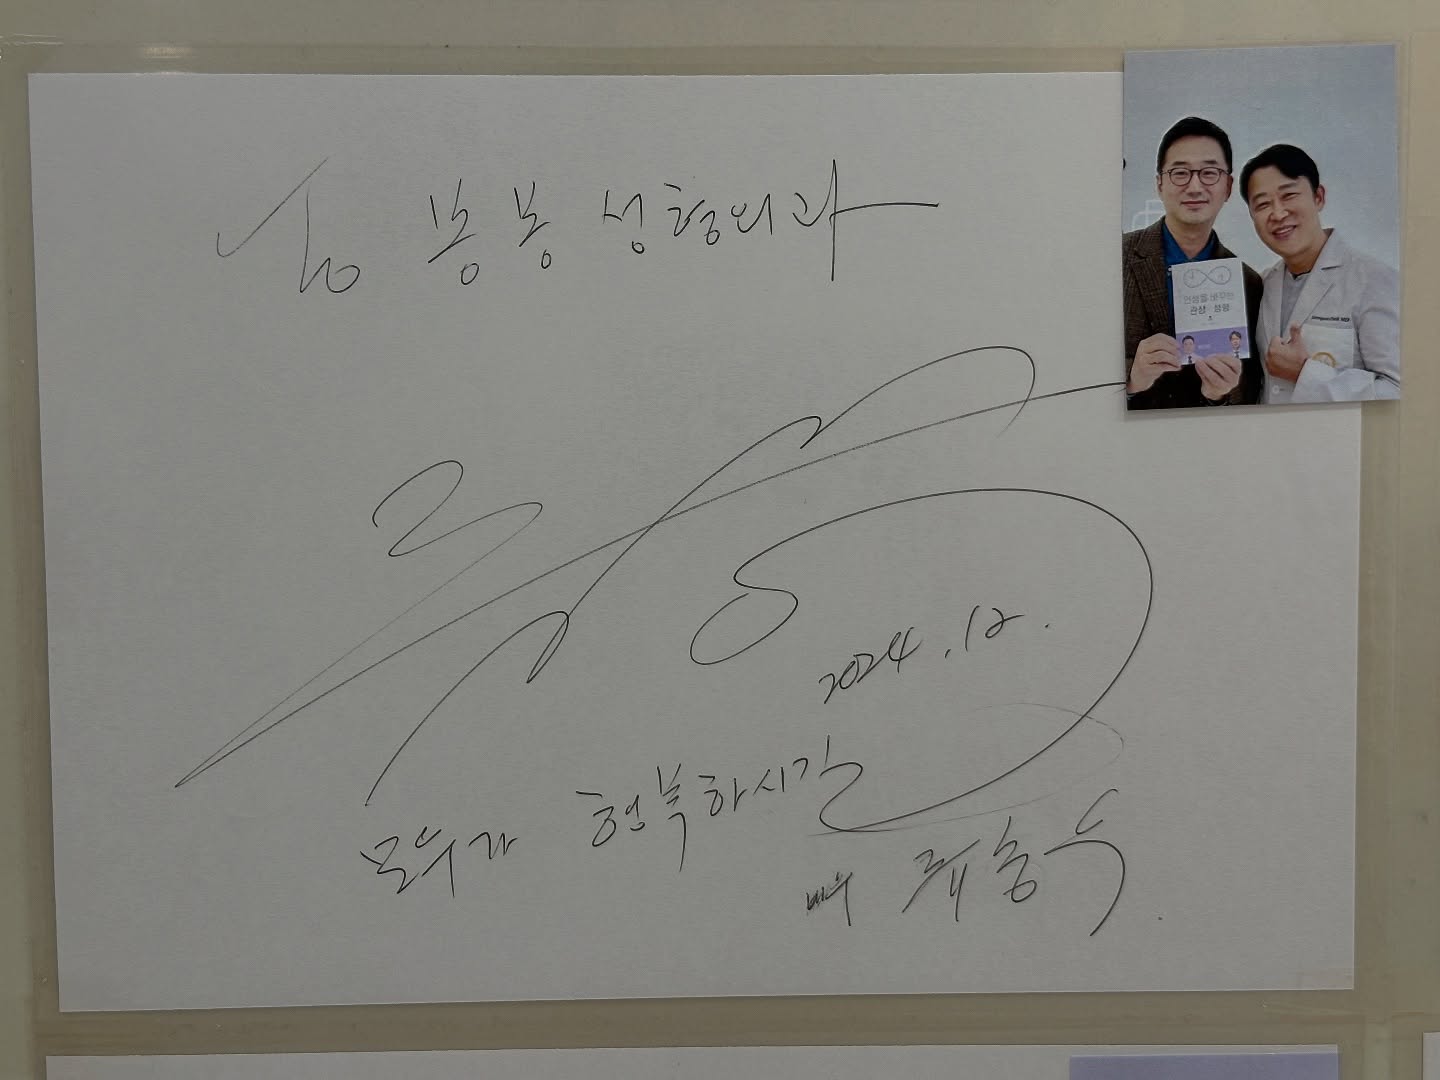 송 봉봉 성형외과
2024.12.
모두가 행복하시길
배우 류승수
인생을 바꾸는
관상 성형